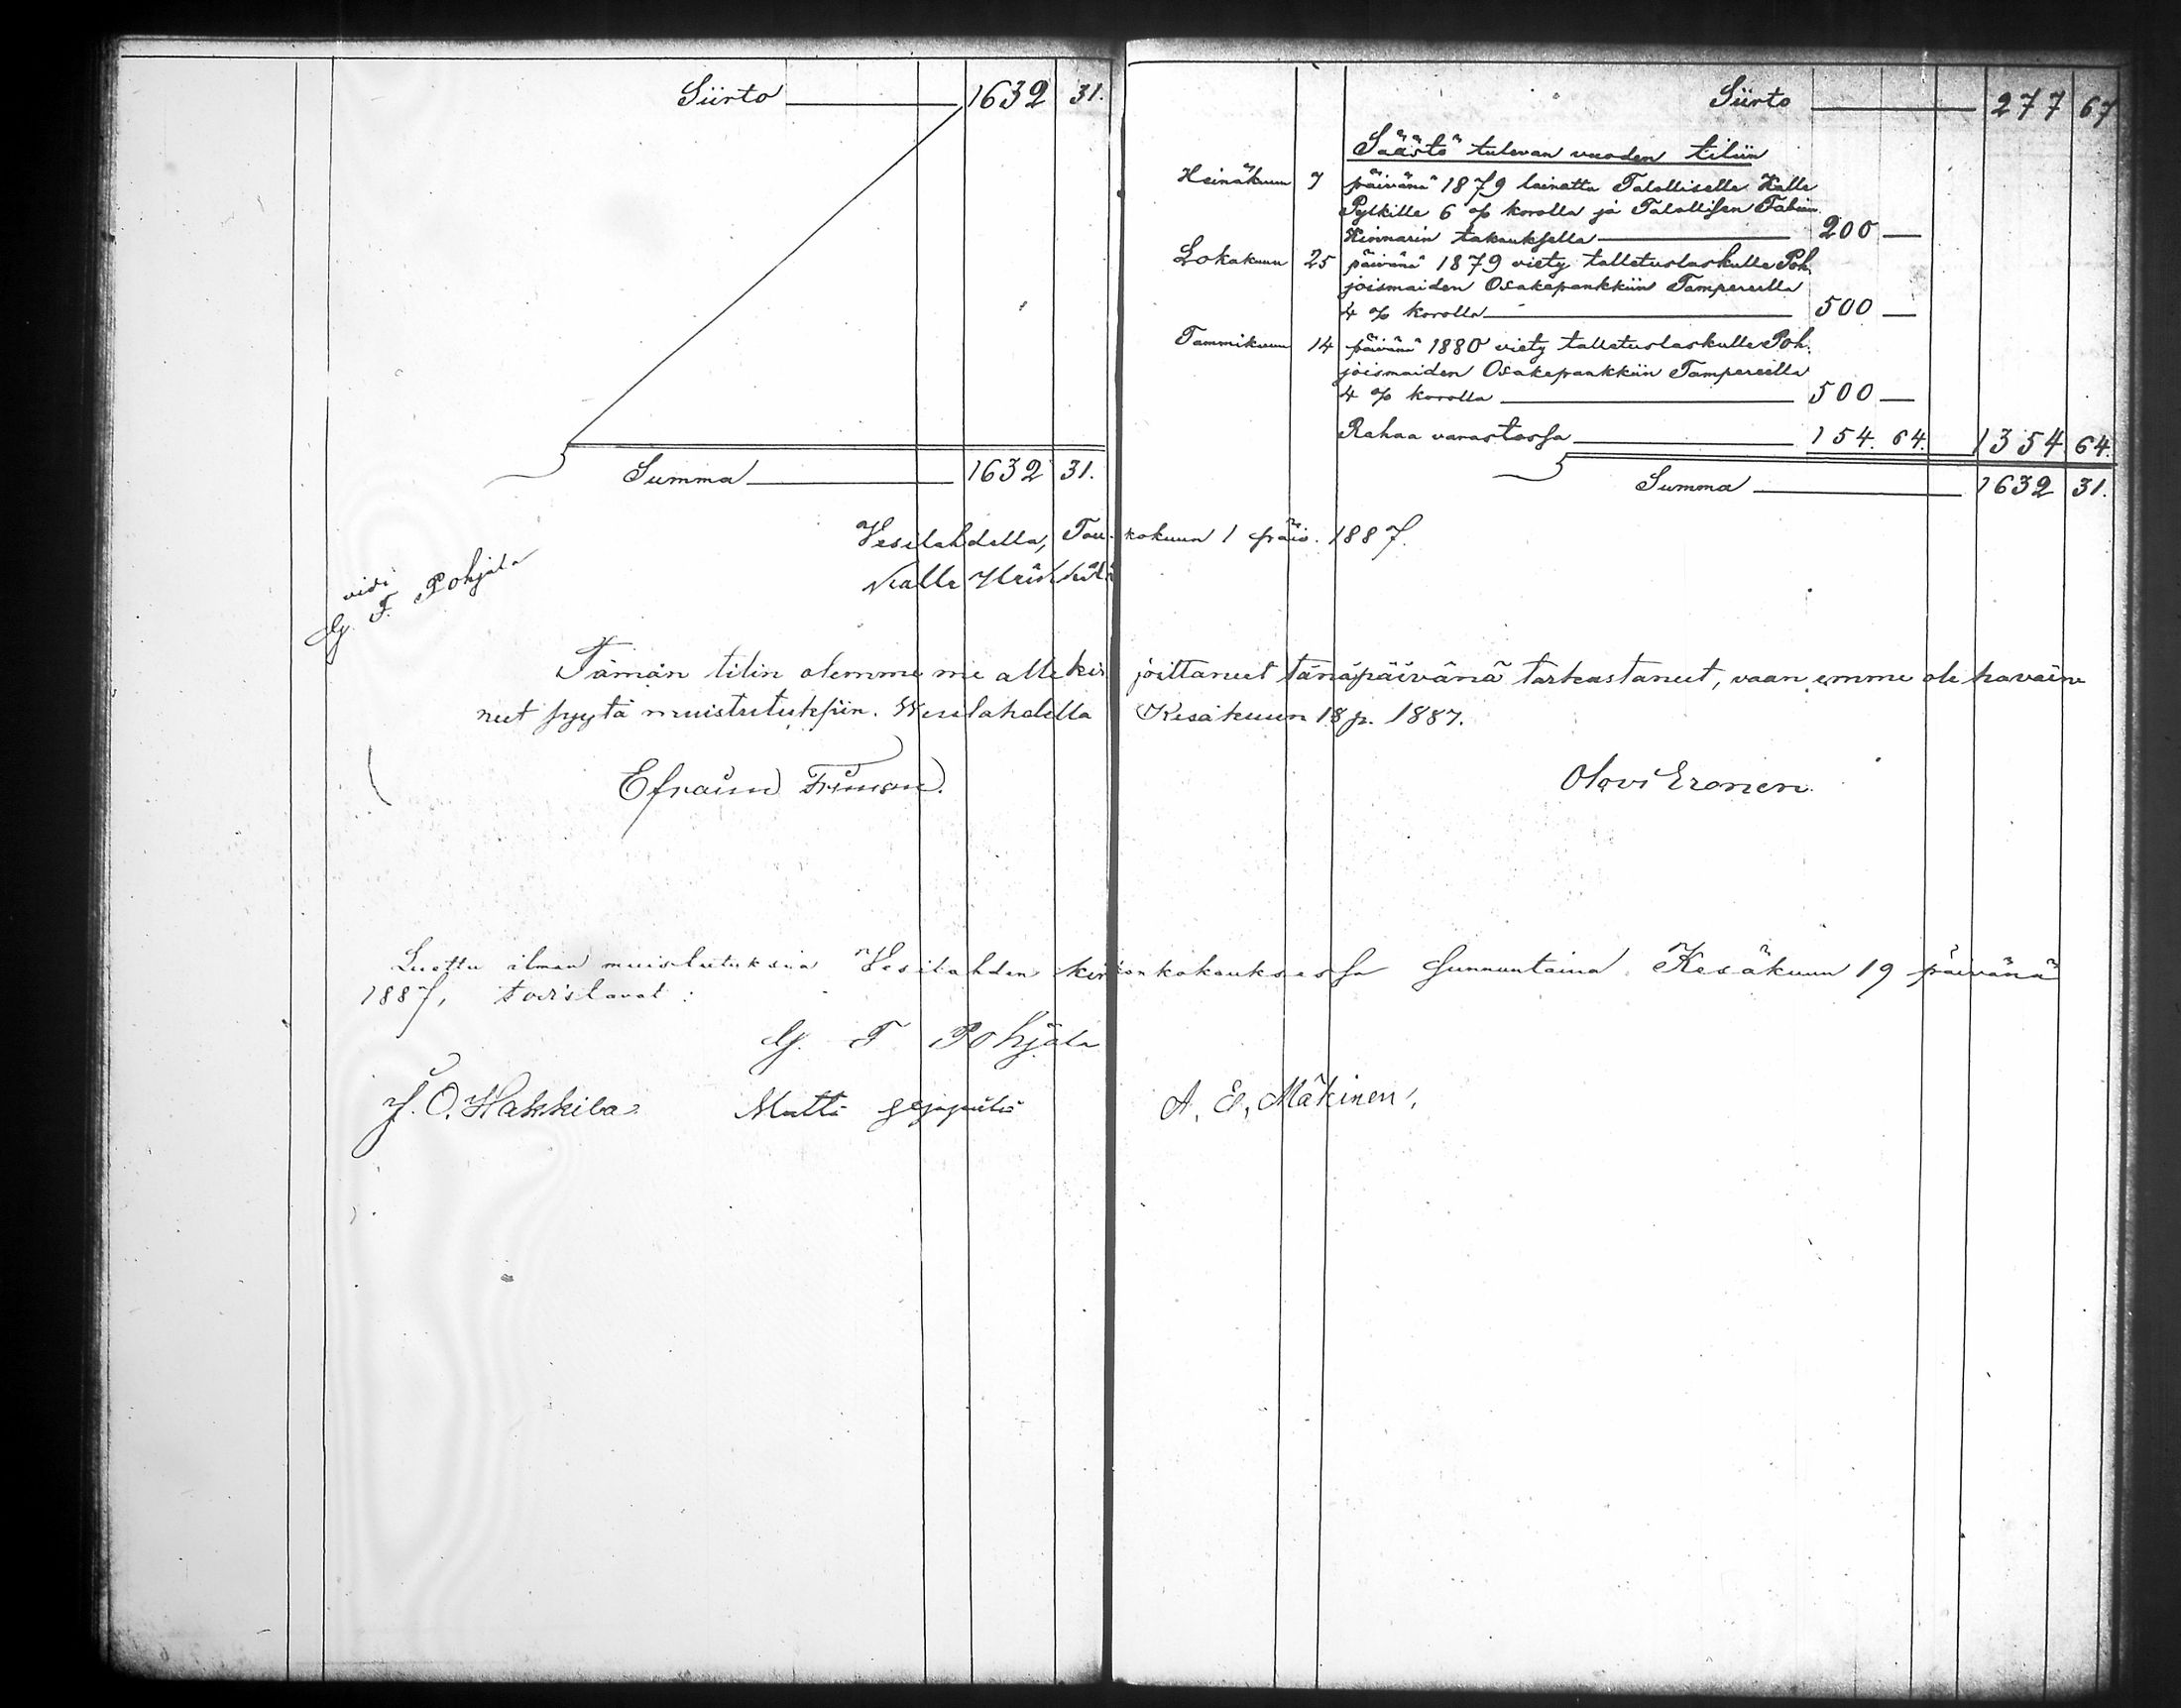 Siirto 1632 31.
Summa 1632 31.
Siirto 277 67
Säästö tulevan vuoden tiliin
Heinäkuun 7 päivänä 1879 lainattu Talolliselle Kalle
Pylkille 6 % korolla ja Talollisen Fabian
Kinnarin takauksella 200 —
Lokakuun 25 päivänä 1879 viety talletuslaskulle Poh
joismaiden Osakepankkiin Tampereella
4 % korolla 500 —
Tammikuun 14 päivänä 1880 viety talletuslaskulle Poh
joismaiden Osakepankkiin Tampereella
4 % korolla 500 —
Rahaa varastossa 154. 64. 1354 64.
Summa 1632 31.
Vesilahdella, Toukokuun 1 päiv. 1887.
Kalle
vidi
G. F. Pohjala
Tämän tilin olemme me allekirjoittaneet tänäpäivänä tarkastaneet, vaan emme ole havain
neet syytä muistutuksiin. Wesilahdella Kesäkuun 18 p. 1887.
Efraim Friman. Olavi Eronen.
Luettu ilman muistutuksia Vesilahden kirkonkokouksessa sunnuntaina Kesäkuun 19 päivänä
1887, todistavat:
G. F Pohjala
J. O. Hakkila Matti A. E. Mäkinen